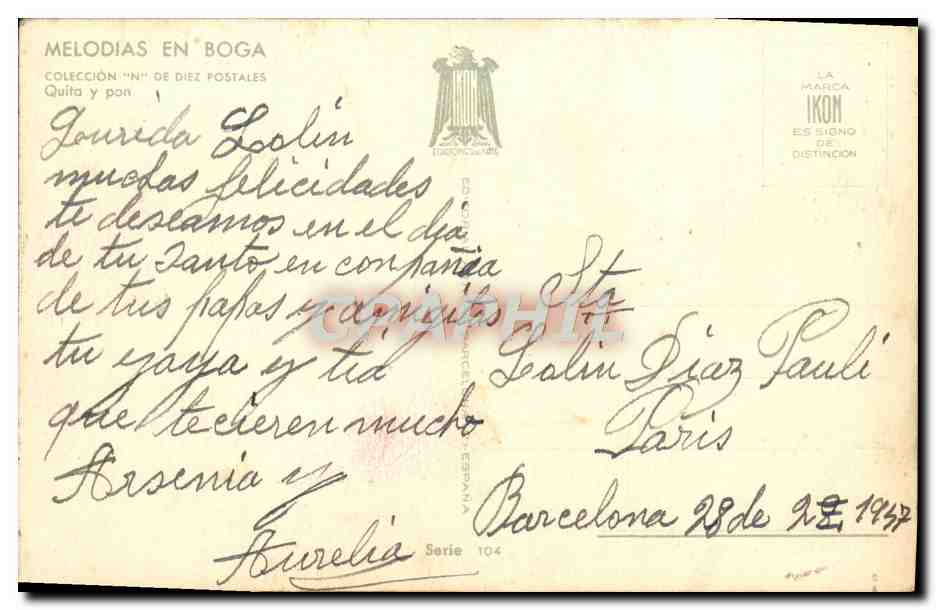 MELODIAS EN BOGA
COLECCIÓN "N" DE DIEZ POSTALES
Quita y pon
LA
MARCA
IKON
ES SIGNO
DE
DISTINCION
Lolin
muchas felicidades
te deseamos en el dia
de tu Santo en conpañia
de tus papas y amigitas
tu yaya y tia
que te cieren mucho
Arsenia y
Aurelia
Sta
Lolin Diaz Pauli
Paris
Barcelona 28 de 1947
BARCELONA - ESPAÑA
Serie 104
CPAPHIL